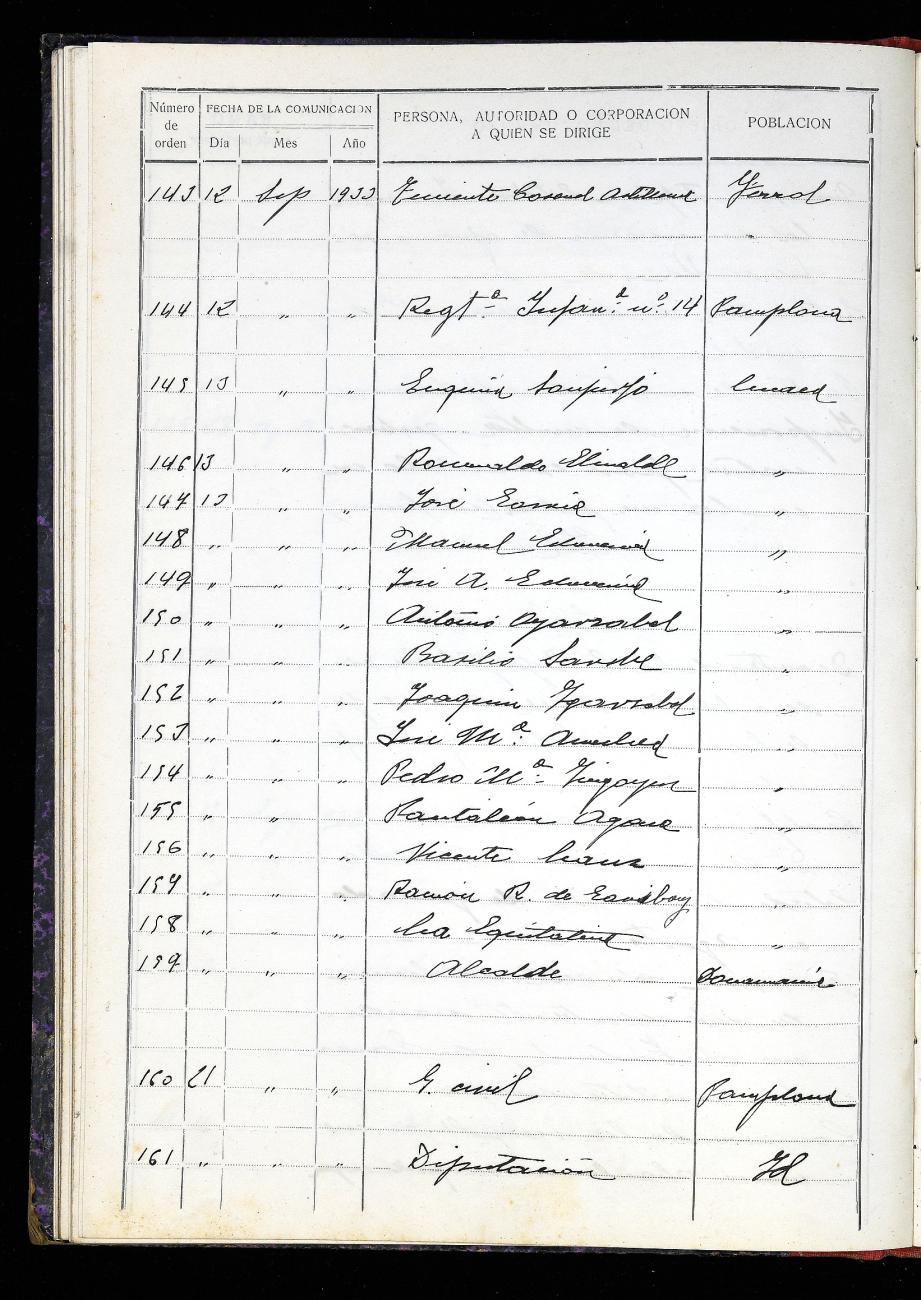 Número de orden FECHA DE LA COMUNICACION PERSONA, AUTORIDAD O CORPORACION A QUIEN SE DIRIGE POBLACION
Día Mes Año
143 12 Sep 1933 Teniente Coronel Ferrol
144 12 „ „ Regtº Infanª nº 14 Pamplona
145 13 „ „ Eugenia
146 13 „ „ „
147 13 „ „ José „
148 „ „ „ Manuel „
149 „ „ „ José A. „
150 „ „ „ Antonio Oyarzabal „
151 „ „ „ Basilio „
152 „ „ „ Joaquin „
153 „ „ „ José Mª „
154 „ „ „ Pedro Mª „
155 „ „ „ Pantaleón „
156 „ „ „ Vicente „
157 „ „ „ Ramón R. de „
158 „ „ „ La Equitativa „
159 „ „ „ Alcalde Donamaría
160 21 „ „ G. civil Pamplona
161 „ „ „ Diputación Id